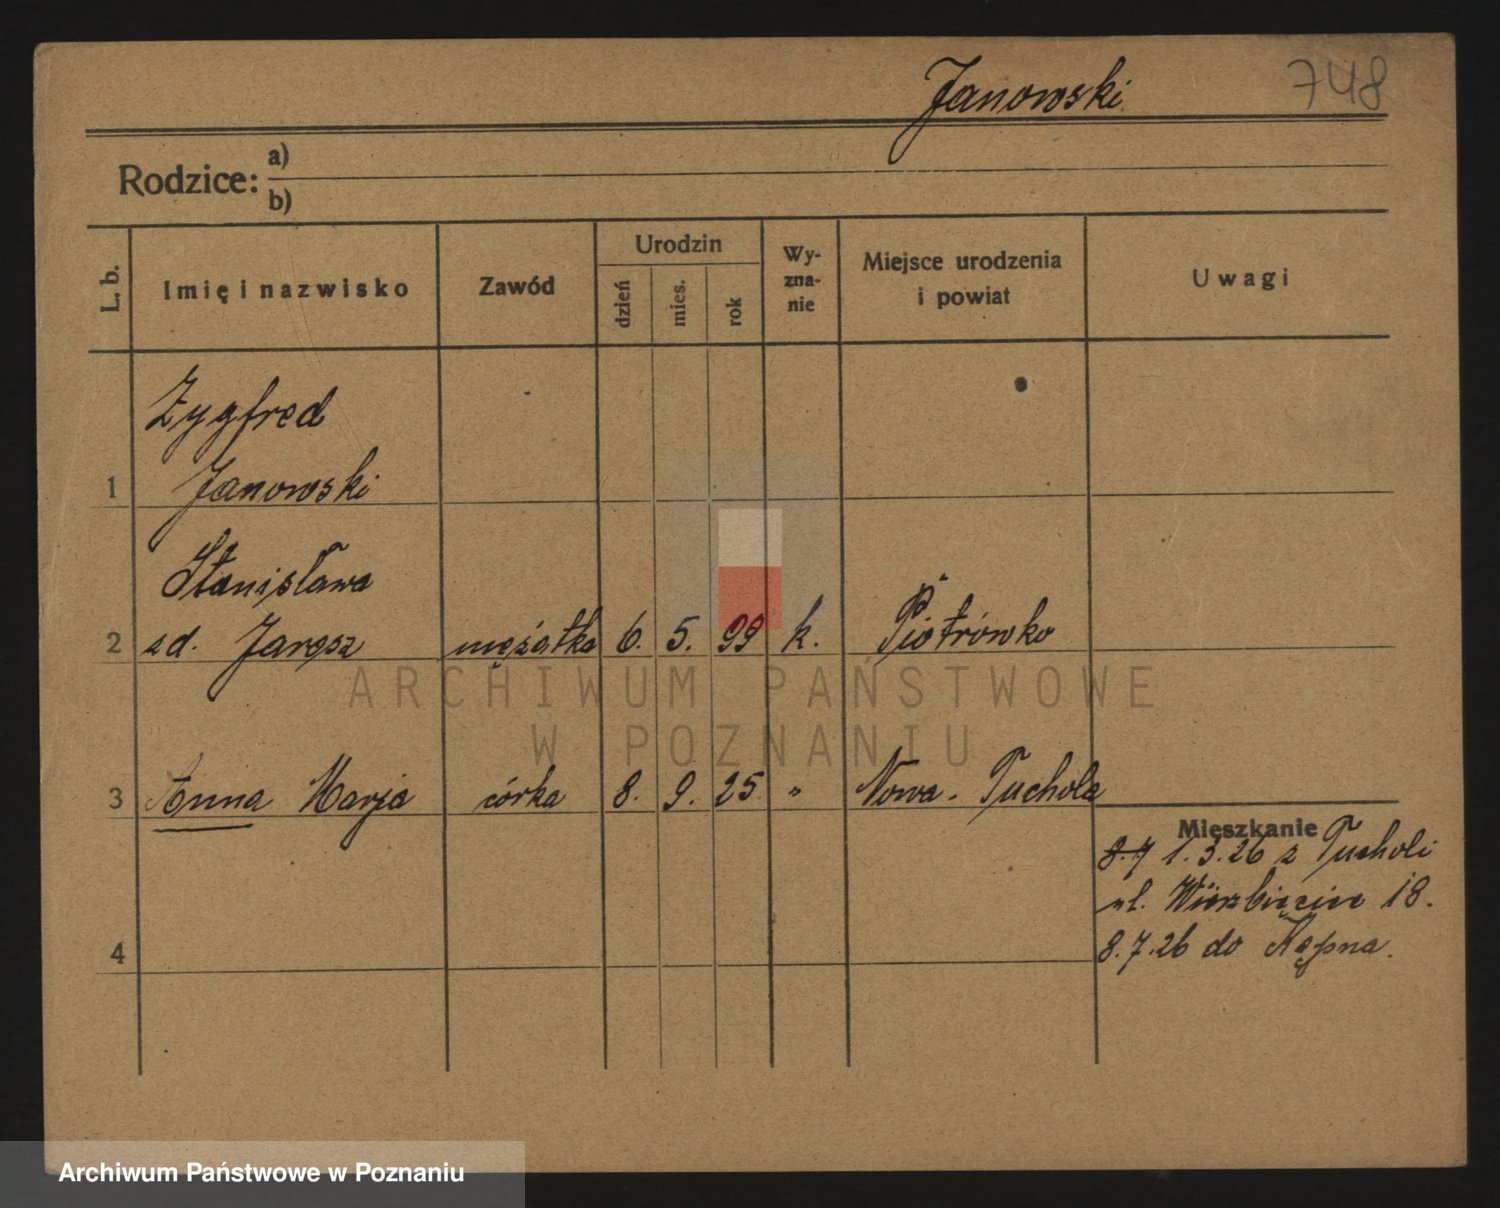 Janowski
748
Rodzice: a)
b)
L. b.
Imię i nazwisko
Zawód
Urodzin
dzień
mies.
rok
Wy-
zna-
nie
Miejsce urodzenia
i powiat
Uwagi
Zygfred
1 Janowski
Stanisława
2 zd. Jarosz mężatka 6. 5. 99 k. Piotrówko
3 Anna Marja córka 8. 9. 25 " Nowa - Tuchola
Mieszkanie
8.7 1.3.26 z Tucholi
ul. Wierzbięcice 18.
4 8.7.26 do Kępna.
ARCHIWUM PAŃSTWOWE
W POZNANIU
Archiwum Państwowe w Poznaniu